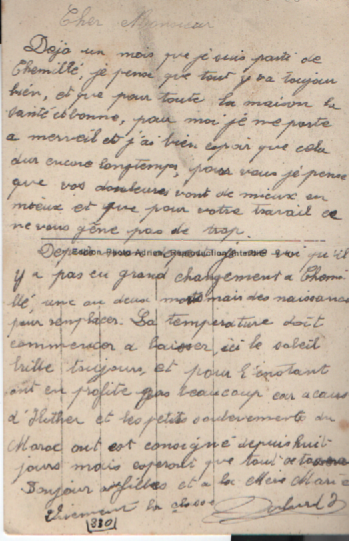 Cher Monsieur
Dejà un mois que je suis parté de
Chemillé, je pense que tout y va toujour
bien, et que pour toute la maison la
santé est bonne, pour moi je me porte
a merveil et j'ai bien espoir que cela
dur encore longtemps, pour vous je pense
que vos douleurs vont de mieux en
mieux et que pour votre travail ce
ne vous gène pas de trop.
Depuis que je qu'il
y a pas eu grand changement a Chemi
llé, une ou deux mort mais des naissances
pour remplacer. La temperature doit
commencer a baisser, ici le soleil
brille toujours, et pour l'enstant
ont en profite pas beaucoup car a cause
d'Hither et les petits soulevements du
Maroc ont est consigné depuis huit
jours mais esperont que tout
Bonjour a et a la Marie
la classe
(330)